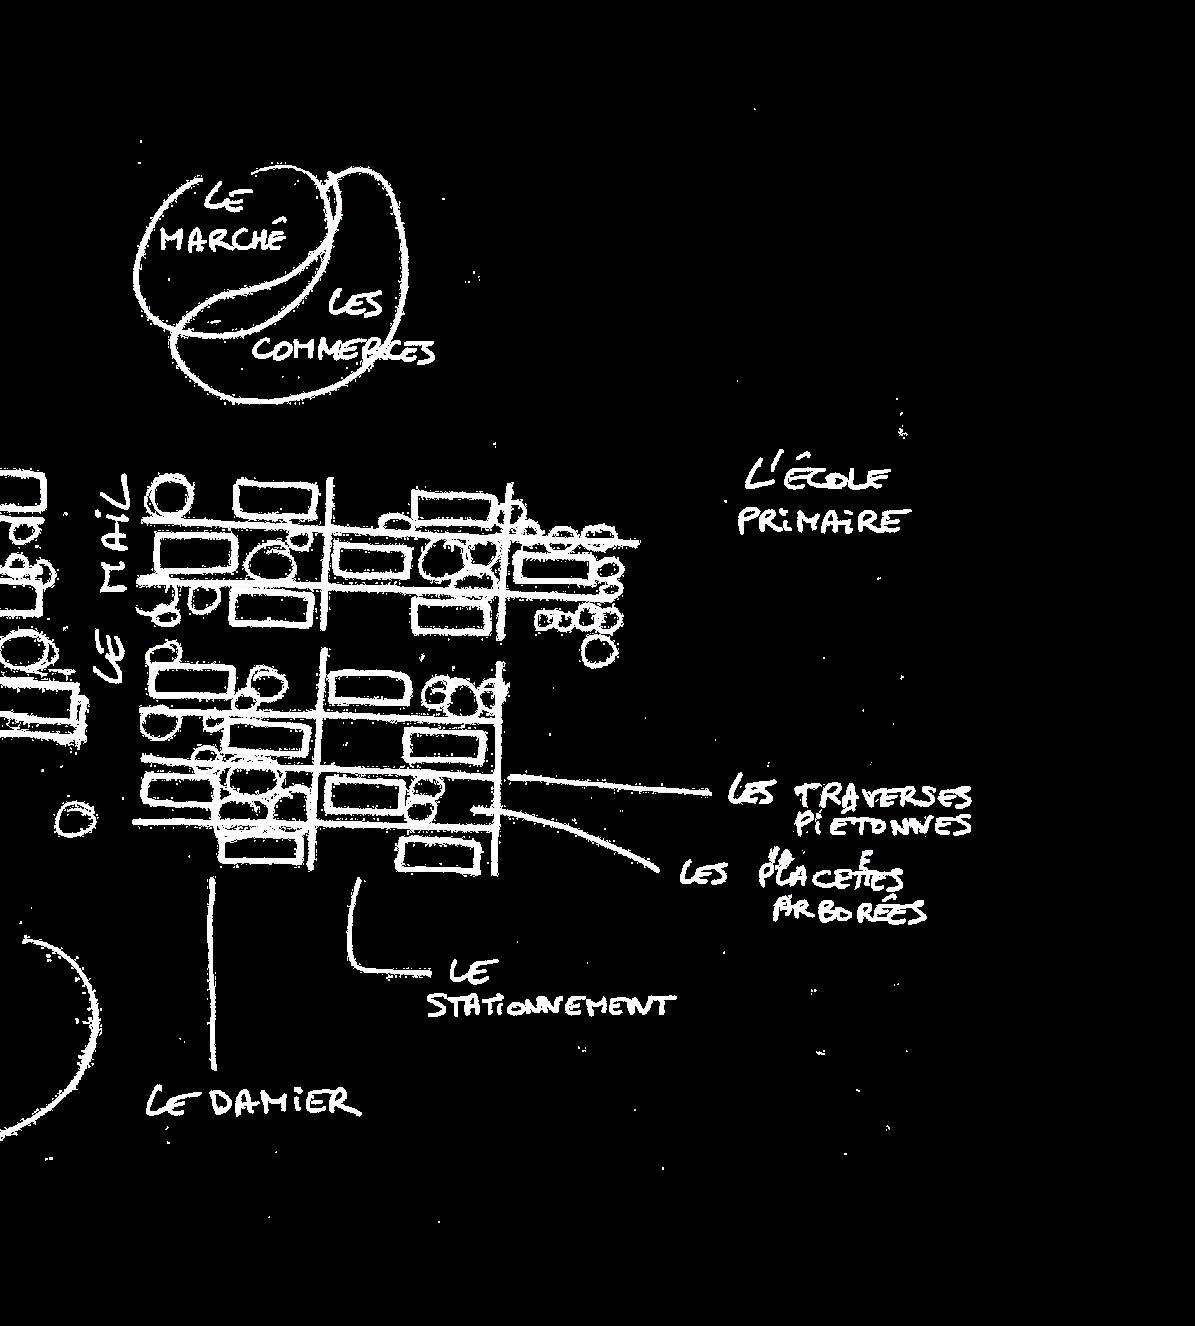 LE
MARCHÉ
LES
COMMERCES
L'ÉCOLE
PRIMAIRE
LE MAIL
LES TRAVERSES
PIÉTONNES
LES PLACETTES
ARBORÉES
LE
STATIONNEMENT
LE DAMIER